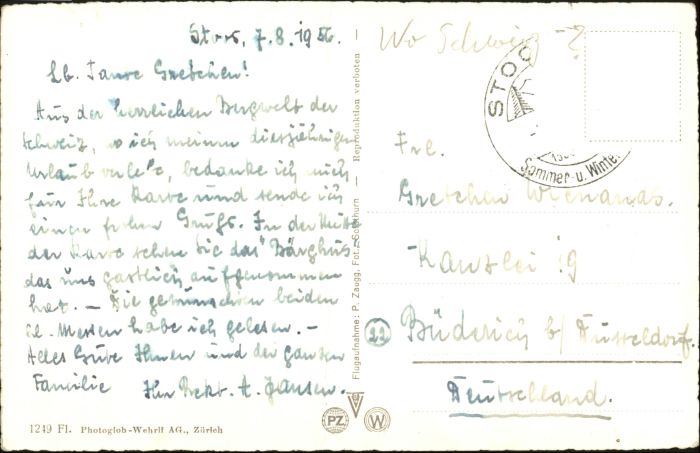 Stoos, 7.8.1956.
Lb. Tante Gretchen!
Aus der herrlichen Bergwelt der
Schweiz, wo ich meinen diesjährigen
Urlaub verlebe, bedanke ich mich
für Ihre Karte und sende ich
einen frohen Gruß. In der Mitte
der Karte sehen Sie das "Bärghus"
das uns gastlich aufgenommen
hat. – Die gewünschten beiden
hl. Messen habe ich gelesen. –
Alles Gute Ihnen und der ganzen
Familie Ihr Rekt. A. Jansen.
1249 Fl. Photoglob-Wehrli AG., Zürich
Flugaufnahme: P. Zaugg, Fot., Solothurn — Reproduktion verboten —
PZ W
Wo Schweiz - ?
STOO
Sommer- u. Winte
Frl.
Gretchen Wienands.
Kanzlei 19
22 Büderich b/ Düsseldorf.
Deutschland.